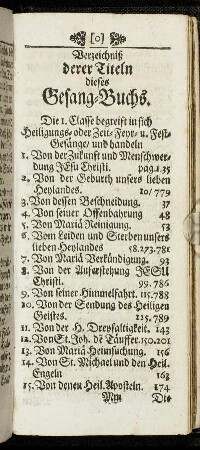 [0]
Verzeichniß
derer Titeln
dieses
Gesang-Buchs.
Die 1. Classe begreift in sich
Heiligungs- oder Zeit-Feyr- u. Fest-
Gesänge und handeln
1. Von der Zukunft und Menschwer-
dung JEsu Christi. pag. 1.35
2. Von der Geburth unsers lieben
Heylandes. 10/779
3. Von dessen Beschneidung. 37
4. Von seiner Offenbahrung 48
5. Von Mariä Reinigung. 53
6. Vom Leiden und Sterben unsers
lieben Heylandes 58.273.781
7. Von Mariä Verkündigung. 93
8. Von der Auferstehung JESU
Christi. 99.786
9. Von seiner Himmelfahrt. 115.788
10. Von der Sendung des Heiligen
Geistes. 125.789
11. Von der H. Dreyfaltigkeit. 143
12. Von St. Joh. de Täuffer. 150.201
13. Von Mariä Heimsuchung. 156
14. Von St. Michael und den Heil.
Engeln 163
15. Von denen Heil. Aposteln. 174
Mm Die